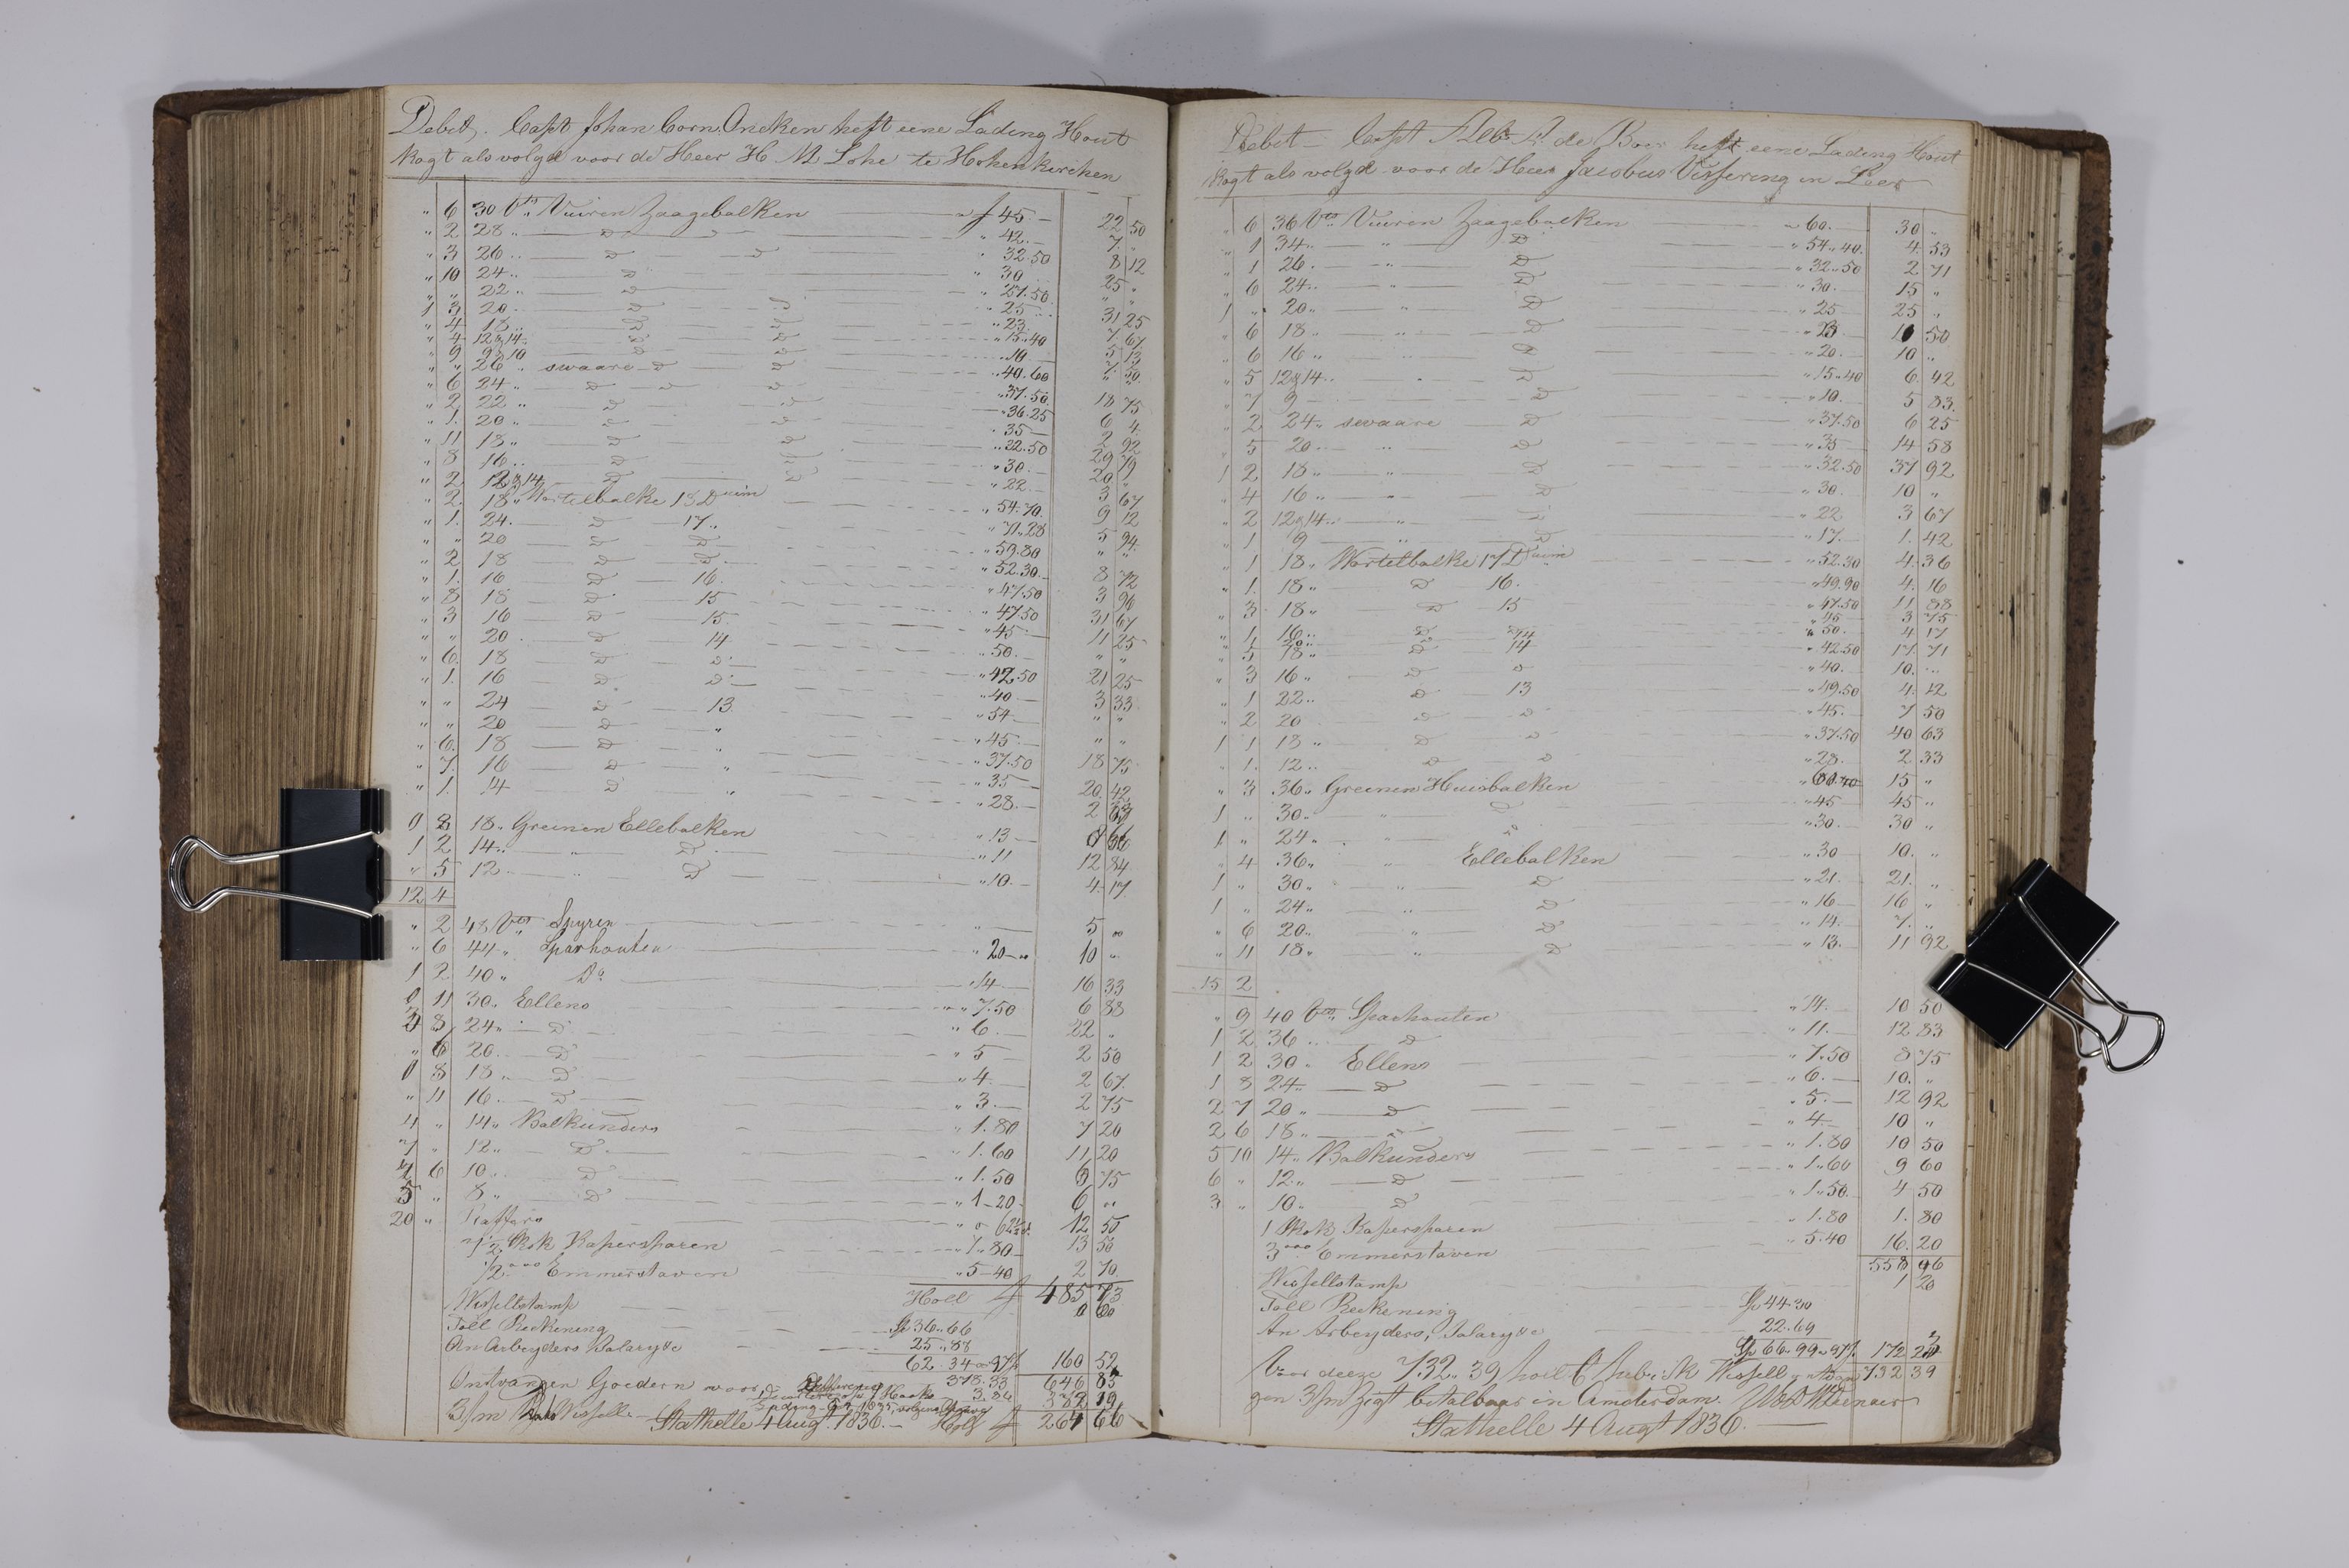 Debet. Capt Johan Corn. Oncken heft eene Lading Hout
Kogt als volgd voor de Heer H M Lohe te Hohenkirchen
" 6 30 Vts Vuiren Zaagebalken — a f 45 — 22 50
" 2 28 " — D — " 42. — 7. "
" 3 26 " — D — D " 32.50 8 12
" 10 24 " — D — " 30 25 "
" " 22 " — D — " 27.50 " "
1 3 20 — D D " 25 31 25
" 4 18 " D D " 23. 7. 67
" 4 12 & 14 " D D " 15.40 5 13
" 9 9 & 10 D D " 10 7. 50
" " 26 " swaare D D " 40.60 " "
" 6 24 " D " D " 37.50 18 75
" 2 22 " D D " 36.25 6 4
" 1. 20 " D D " 35 — 2 92
" 11 18 " D D " 32.50 29 79
" 8 16 " D D " 30. — 20 "
" 2 12 & 14 D D " 22. — 3 67
" 2 18 " Wortelbalke 18 Duim " 54.70. 9 12
" 1. 24. D — 17 " " 71.28 5 94
" " 20 D D " 59.80 " "
" 2 18 D D " 52.30. 8 72
" 1. 16 D 16. " 47.50 3 96
" 8 18 D 15 " 47.50 31 67
" 3 16 D 15 " 45 — 11 25
" " 20 D 14 " 50. — " "
" 6. 18 D D " 42.50 21 25
" 1. 16 D D " 40 — 3 33
" " 24 D 13. " 54 — " "
" " 20 D " " 45 — " "
" 6. 18 D " " 37.50 18 75
" 7. 16 D " " 35 — 20 42
" 1. 14 D " " 28. — 2 33
" 8 18 " Greinen Ellebalken " 13 — 8 66
1 2 14 " " D " 11 12 84
" 5 12 " " D " 10. — 4 17
12 4
" 2 48 Vts Spyren — " 5 "
" 6 44 " Sparhouten " 20 — " 10 "
1 2 40 " Do " 14 — 16 33
" 11 30 " Ellens " 7.50 6 88
3 8 24 " D " 6. — 22 "
" 6 20. D " 5 — 2 50
" 8 18 " D " 4. — 2 67
" 11 16. D " 3. — 2 75
4 " 14 " Balkunders " 1.80 7 20
7 " 12 " D " 1.60 11 20
4 6 10. D " 1.50 6 75
5 " 8 " D " 1 - 20 6 "
20 " Raffters — " 62½ 12 50
7½ Skok Kapersparen " 1.80 13 50
½ ooo Emmerstaven " 5 - 40 2 70
Holl f 485 73
Wissellstamp 0 60
Toll Rekening — Sp 36.66
An Arbeyders Salary &c — 25.88
62.34 a 97 ß 160 52
Ontvangen Goedern voor 378.33 646 85
3.86 382 19
3/m Wissell — Stathelle 4 Augt. 1836. — Holl f 264 66
Debet — Capt Alb. R. de Boer heft eene Lading Hout
Kogt als volgd voor de Heer Jacobus Vissering in Leer
" 6 36 Vts Vuiren Zaagebalken " 60. — 30 "
" 1 34 " " D " 54.40. 4 53
" 1 26 " " D " 32.50 2 71
" 6 24 " " D " 30. 15 "
1 " 20 " " D " 25 25 "
" 6 18 " " D " 23 11 50
" 6 16 " " D " 20. 10 "
" 5 12 & 14 " " D " 15.40 6. 42
" 7 9 — D " 10. 5 83.
" 2 24 " swaare D " 37.50 6 25
" 5 20 " " D " 35 14 58
1 2 18 " " D " 32.50 37 92
" 4 16 " " D " 30. 10 "
" 2 12 & 14 " " D " 22 3 67
" 1 9 " D " 17. 1. 42
" 1 18 " Wortelbalke 17 Duim " 52.30 4 36
" 1. 18 " D 16. " 49.90 4. 16
" 3 18 " D 15 " 47.50 11 88
" 1 16 " D " " 45 3 75
" 1 20 " D 14 " 50. 4 17
" 5 18 " D 14 " 42.50 17. 71
" 3 16 " D D " 40. 10. "
" 1 22 " D 13 " 49.50 4. 12
" 2 20 D D " 45. 7 50
1 1 18 " D D " 37.50 40 63
" 1. 12 " D D " 28. 2 33
" 3 36 " Greenen Huusbalken " 60 15 "
1 " 30 " " D " 45 45 "
1 " 24 " " D " 30. 30 "
" 4 36 " " Ellebalken " 30 10. "
1 " 30 " " D " 21. 21. "
1 " 24 " " D " 16 16 "
" 6 20 " " D " 14. 7. "
" 11 18 " " D " 13. 11 92
15 2
" 9 40 Vts Sparhouten " 14. 10 50
1 2 36 " D " 11. 12 83
1 2 30 " Ellens " 7.50 8 75
1 8 24 " D " 6. — 10. "
2 7 20 " D " 5. — 12 92
2 6 18 " D " 4 — 10 "
5 10 14 " Balkunders " 1.80 10 50
6 " 12 " D " 1.60 9 60
3 " 10 " D " 1.50. 4 50
1 Skok Kapersparen " 1.80 1. 80
3 ooo Emmerstaven " 5.40 16. 20
558 96
Wissellstamp 1 20
Toll Rekening Sp 44.30
An Arbeyders, Salary &c 22.69
Sp 66.99 a 97 ß. 172 23
Voor deeze 732.39 holl Ct hebe ik Wissell 732 39
gen 3/m Zigt betalbaar in Amsterdam.
Stathelle 4 Augt 1836.